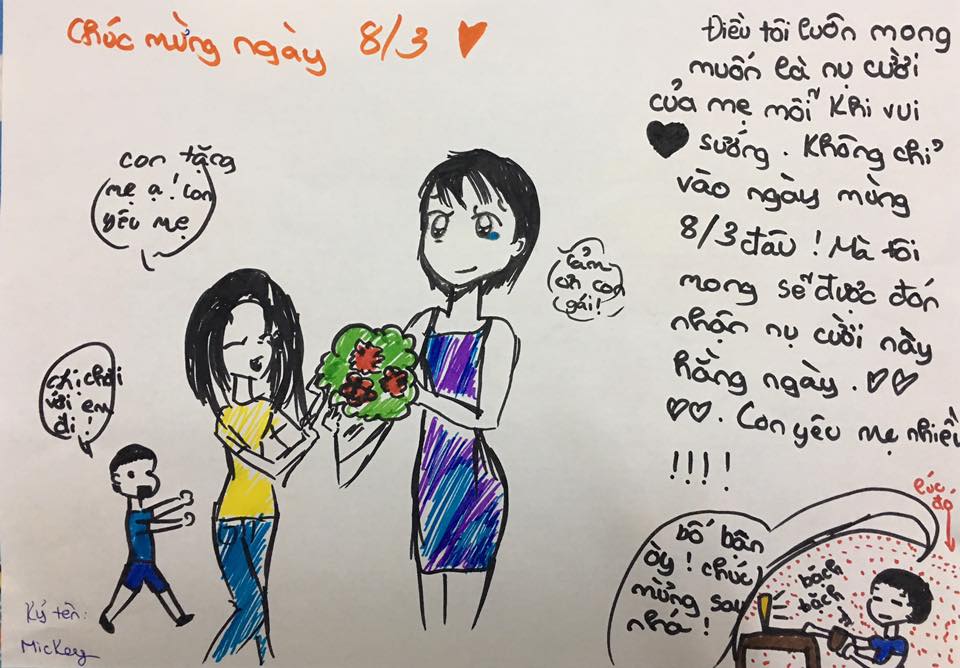 Chúc mừng ngày 8/3
Điều tôi luôn mong
muốn là nụ cười
của mẹ mỗi khi vui
sướng. Không chỉ
vào ngày mừng
8/3 đâu! Mà tôi
mong sẽ được đón
nhận nụ cười này
hằng ngày. ♡♡
♡♡. Con yêu mẹ nhiều
!!!!
con tặng
mẹ ạ! Con
yêu mẹ
Cảm
ơn con
gái!
chị chơi
với em
đi!
lúc
đó
bố bận
òy! chúc
mừng sau
nhá!
bách
bách
Ký tên:
Mickey